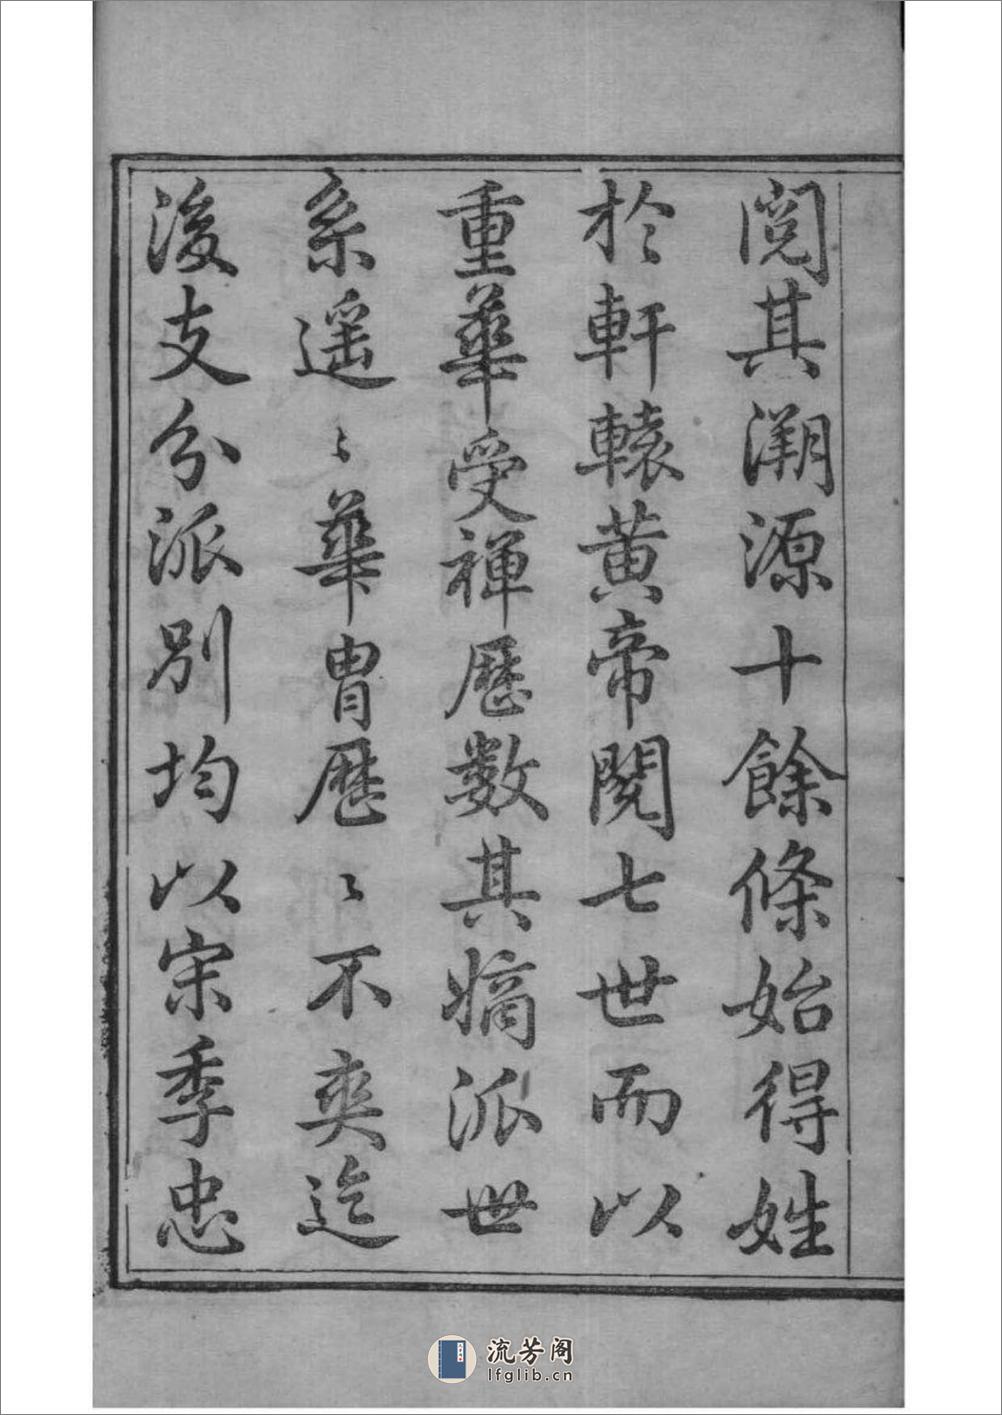 閱其溯源十餘條始得姓
於軒轅黃帝閱七世而以
重華受禪歷數其嫡派世
系遥〻華胄歷〻不爽迄
後支分派別均以宗季忠
流芳阁
lfglib.cn